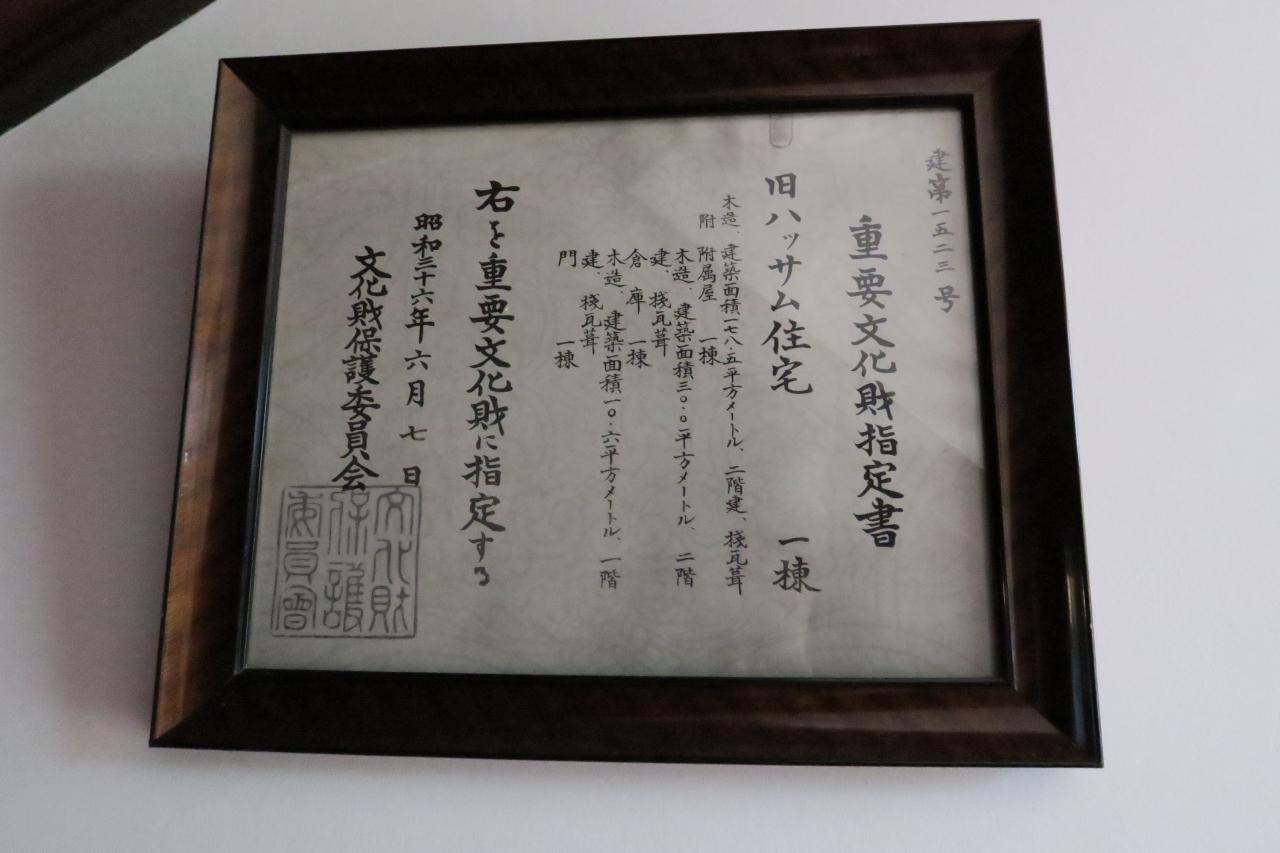 建第一五二三号
重要文化財指定書
旧ハッサム住宅 一棟
木造、建築面積一七八・五平方メートル、二階建、棧瓦葺
附 附属屋 一棟
木造、建築面積三〇・〇平方メートル、二階
建、棧瓦葺
倉庫 一棟
木造、建築面積一〇・六平方メートル、一階
建、棧瓦葺
門 一棟
右を重要文化財に指定する
昭和三十六年六月七日
文化財保護委員会
文化財
保護
委員會